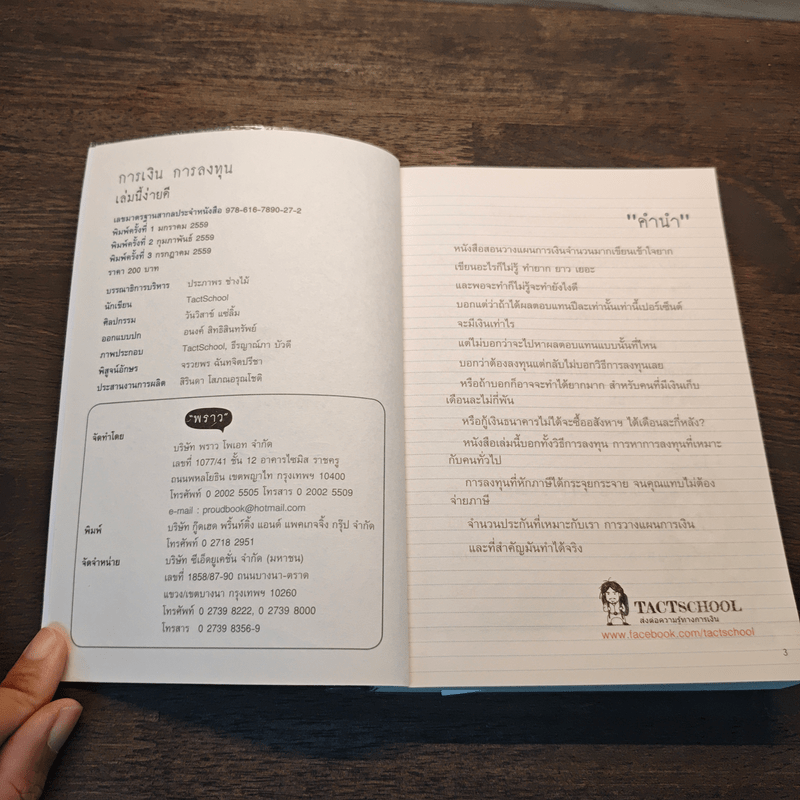 การเงิน การลงทุน
เล่มนี้ง่ายดี
เลขมาตรฐานสากลประจำหนังสือ 978-616-7890-27-2
พิมพ์ครั้งที่ 1 มกราคม 2559
พิมพ์ครั้งที่ 2 กุมภาพันธ์ 2559
พิมพ์ครั้งที่ 3 กรกฎาคม 2559
ราคา 200 บาท
บรรณาธิการบริหาร ประภาพร ช่างไม้
นักเขียน TactSchool
ศิลปกรรม วันวิสาข์ แซ่ลิ้ม
ออกแบบปก อนงค์ สิทธิสินทรัพย์
ภาพประกอบ TactSchool, ธีรญาณ์ภา บัวดี
พิสูจน์อักษร จรวยพร ฉันทจิตปรีชา
ประสานงานการผลิต สิรินดา โสภณอรุณโชติ
"พราว"
จัดทำโดย บริษัท พราว โพเอท จำกัด
เลขที่ 1077/41 ชั้น 12 อาคารไซมิส ราชครู
ถนนพหลโยธิน เขตพญาไท กรุงเทพฯ 10400
โทรศัพท์ 0 2002 5505 โทรสาร 0 2002 5509
e-mail : proudbook@hotmail.com
พิมพ์ บริษัท กู๊ดเฮด พริ้นท์ติ้ง แอนด์ แพคเกจจิ้ง กรุ๊ป จำกัด
โทรศัพท์ 0 2718 2951
จัดจำหน่าย บริษัท ซีเอ็ดยูเคชั่น จำกัด (มหาชน)
เลขที่ 1858/87-90 ถนนบางนา-ตราด
แขวง/เขตบางนา กรุงเทพฯ 10260
โทรศัพท์ 0 2739 8222, 0 2739 8000
โทรสาร 0 2739 8356-9
"คำนำ"
หนังสือสอนวางแผนการเงินจำนวนมากเขียนเข้าใจยาก
เขียนอะไรก็ไม่รู้ ทำยาก ยาว เยอะ
และพอจะทำก็ไม่รู้จะทำยังไงดี
บอกแต่ว่าถ้าได้ผลตอบแทนปีละเท่านั้นเท่านี้เปอร์เซ็นต์
จะมีเงินเท่าไร
แต่ไม่บอกว่าจะไปหาผลตอบแทนแบบนั้นที่ไหน
บอกว่าต้องลงทุนแต่กลับไม่บอกวิธีการลงทุนเลย
หรือถ้าบอกก็อาจจะทำได้ยากมาก สำหรับคนที่มีเงินเก็บ
เดือนละไม่กี่พัน
หรือกู้เงินธนาคารไม่ได้จะซื้ออสังหาฯ ได้เดือนละกี่หลัง?
หนังสือเล่มนี้บอกทั้งวิธีการลงทุน การหาการลงทุนที่เหมาะ
กับคนทั่วไป
การลงทุนที่หักภาษีได้กระจุยกระจาย จนคุณแทบไม่ต้อง
จ่ายภาษี
จำนวนประกันที่เหมาะกับเรา การวางแผนการเงิน
และที่สำคัญมันทำได้จริง
TACTSCHOOL
ส่งต่อความรู้ทางการเงิน
www.facebook.com/tactschool
3